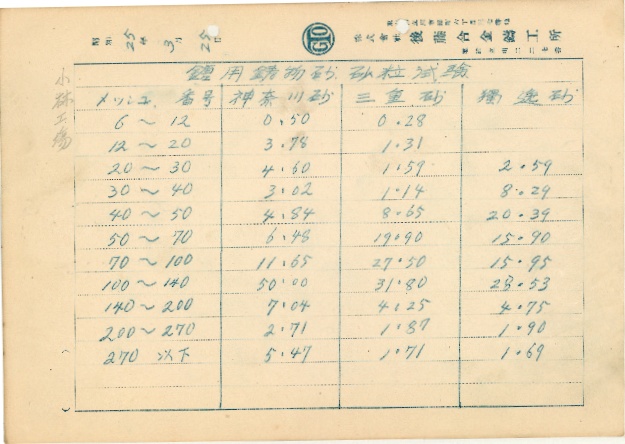 株式會社 後藤合金鑄工所
昭和 25年 3月 25日
小林工場
鐘用鑄物砂 砂粒試驗
メッシュ 番号 神奈川砂 三重砂 獨逸砂
6～12 0.50 0.28
12～20 3.78 1.31
20～30 4.60 1.59 2.59
30～40 3.02 1.14 8.29
40～50 4.84 8.65 20.39
50～70 6.48 19.90 15.90
70～100 11.65 27.50 15.95
100～140 50.00 31.80 28.53
140～200 7.04 4.25 4.75
200～270 2.71 1.87 1.90
270 以下 5.47 1.71 1.69